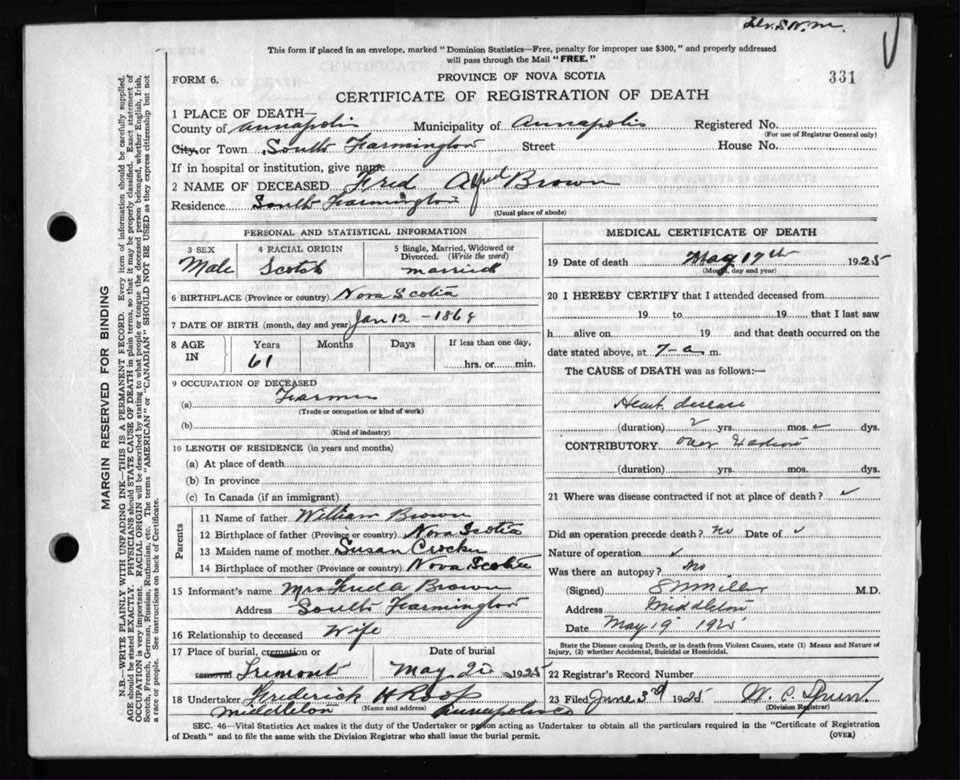 Dr. S. N. M.
This form if placed in an envelope, marked "Dominion Statistics—Free, penalty for improper use $300," and properly addressed
will pass through the Mail "FREE."
FORM 6.
PROVINCE OF NOVA SCOTIA
331
CERTIFICATE OF REGISTRATION OF DEATH
1 PLACE OF DEATH—
County of Annapolis Municipality of Annapolis Registered No.
(For use of Registrar General only)
City or Town South Farmington Street House No.
If in hospital or institution, give name
2 NAME OF DECEASED Fred Alfred Brown
Residence South Farmington
(Usual place of abode)
PERSONAL AND STATISTICAL INFORMATION
3 SEX 4 RACIAL ORIGIN 5 Single, Married, Widowed or Divorced. (Write the word)
Male Scotch married
6 BIRTHPLACE (Province or country) Nova Scotia
7 DATE OF BIRTH (month, day and year) Jan 12 - 1864
8 AGE IN Years Months Days If less than one day,
61 hrs. or min.
9 OCCUPATION OF DECEASED
(a) Farmer
(Trade or occupation or kind of work)
(b)
(Kind of industry)
10 LENGTH OF RESIDENCE (in years and months)
(a) At place of death
(b) In province
(c) In Canada (if an immigrant)
Parents
11 Name of father William Brown
12 Birthplace of father (Province or country) Nova Scotia
13 Maiden name of mother Susan Crocker
14 Birthplace of mother (Province or country) Nova Scotia
15 Informant's name Mrs Fred A Brown
Address South Farmington
16 Relationship to deceased Wife
17 Place of burial, cremation or removal Date of burial
Tremont May 20 1925
18 Undertaker Frederick H Roop
(Name and address)
Middleton Annapolis Co
MEDICAL CERTIFICATE OF DEATH
19 Date of death May 17th 1925
(Month, day and year)
20 I HEREBY CERTIFY that I attended deceased from
19 to 19 that I last saw
h alive on 19 and that death occurred on
date stated above, at 7 a. m.
The CAUSE of DEATH was as follows:—
Heart disease
(duration) 2 yrs. mos. dys.
CONTRIBUTORY Over
(duration) yrs. mos. dys.
21 Where was disease contracted if not at place of death?
Did an operation precede death? no Date of
Nature of operation
Was there an autopsy? No
(Signed) S N Miller M.D.
Address Middleton
Date May 19 1925
State the Disease causing Death, or in death from Violent Causes, state (1) Means and Nature of Injury, (2) whether Accidental, Suicidal or Homicidal.
22 Registrar's Record Number
23 Filed June 3rd 1925 W. C.
(Division Registrar)
SEC. 46—Vital Statistics Act makes it the duty of the Undertaker or person acting as Undertaker to obtain all the particulars required in the "Certificate of Registration
of Death" and to file the same with the Division Registrar who shall issue the burial permit. (OVER)
MARGIN RESERVED FOR BINDING
N.B.—WRITE PLAINLY WITH UNFADING INK—THIS IS A PERMANENT RECORD. Every item of information should be carefully supplied.
AGE should be stated EXACTLY. PHYSICIANS should STATE CAUSE OF DEATH in plain terms, so that it may be properly classified. Exact statement of
OCCUPATION is very important. RACIAL ORIGIN will be described by stating to what people or tongue the deceased person belonged, whether English, Irish,
Scotch, French, German, Russian, Ruthenian, etc. The terms "AMERICAN" or "CANADIAN" SHOULD NOT BE USED as they express citizenship but not
a race or people. See instructions on back of Certificate.